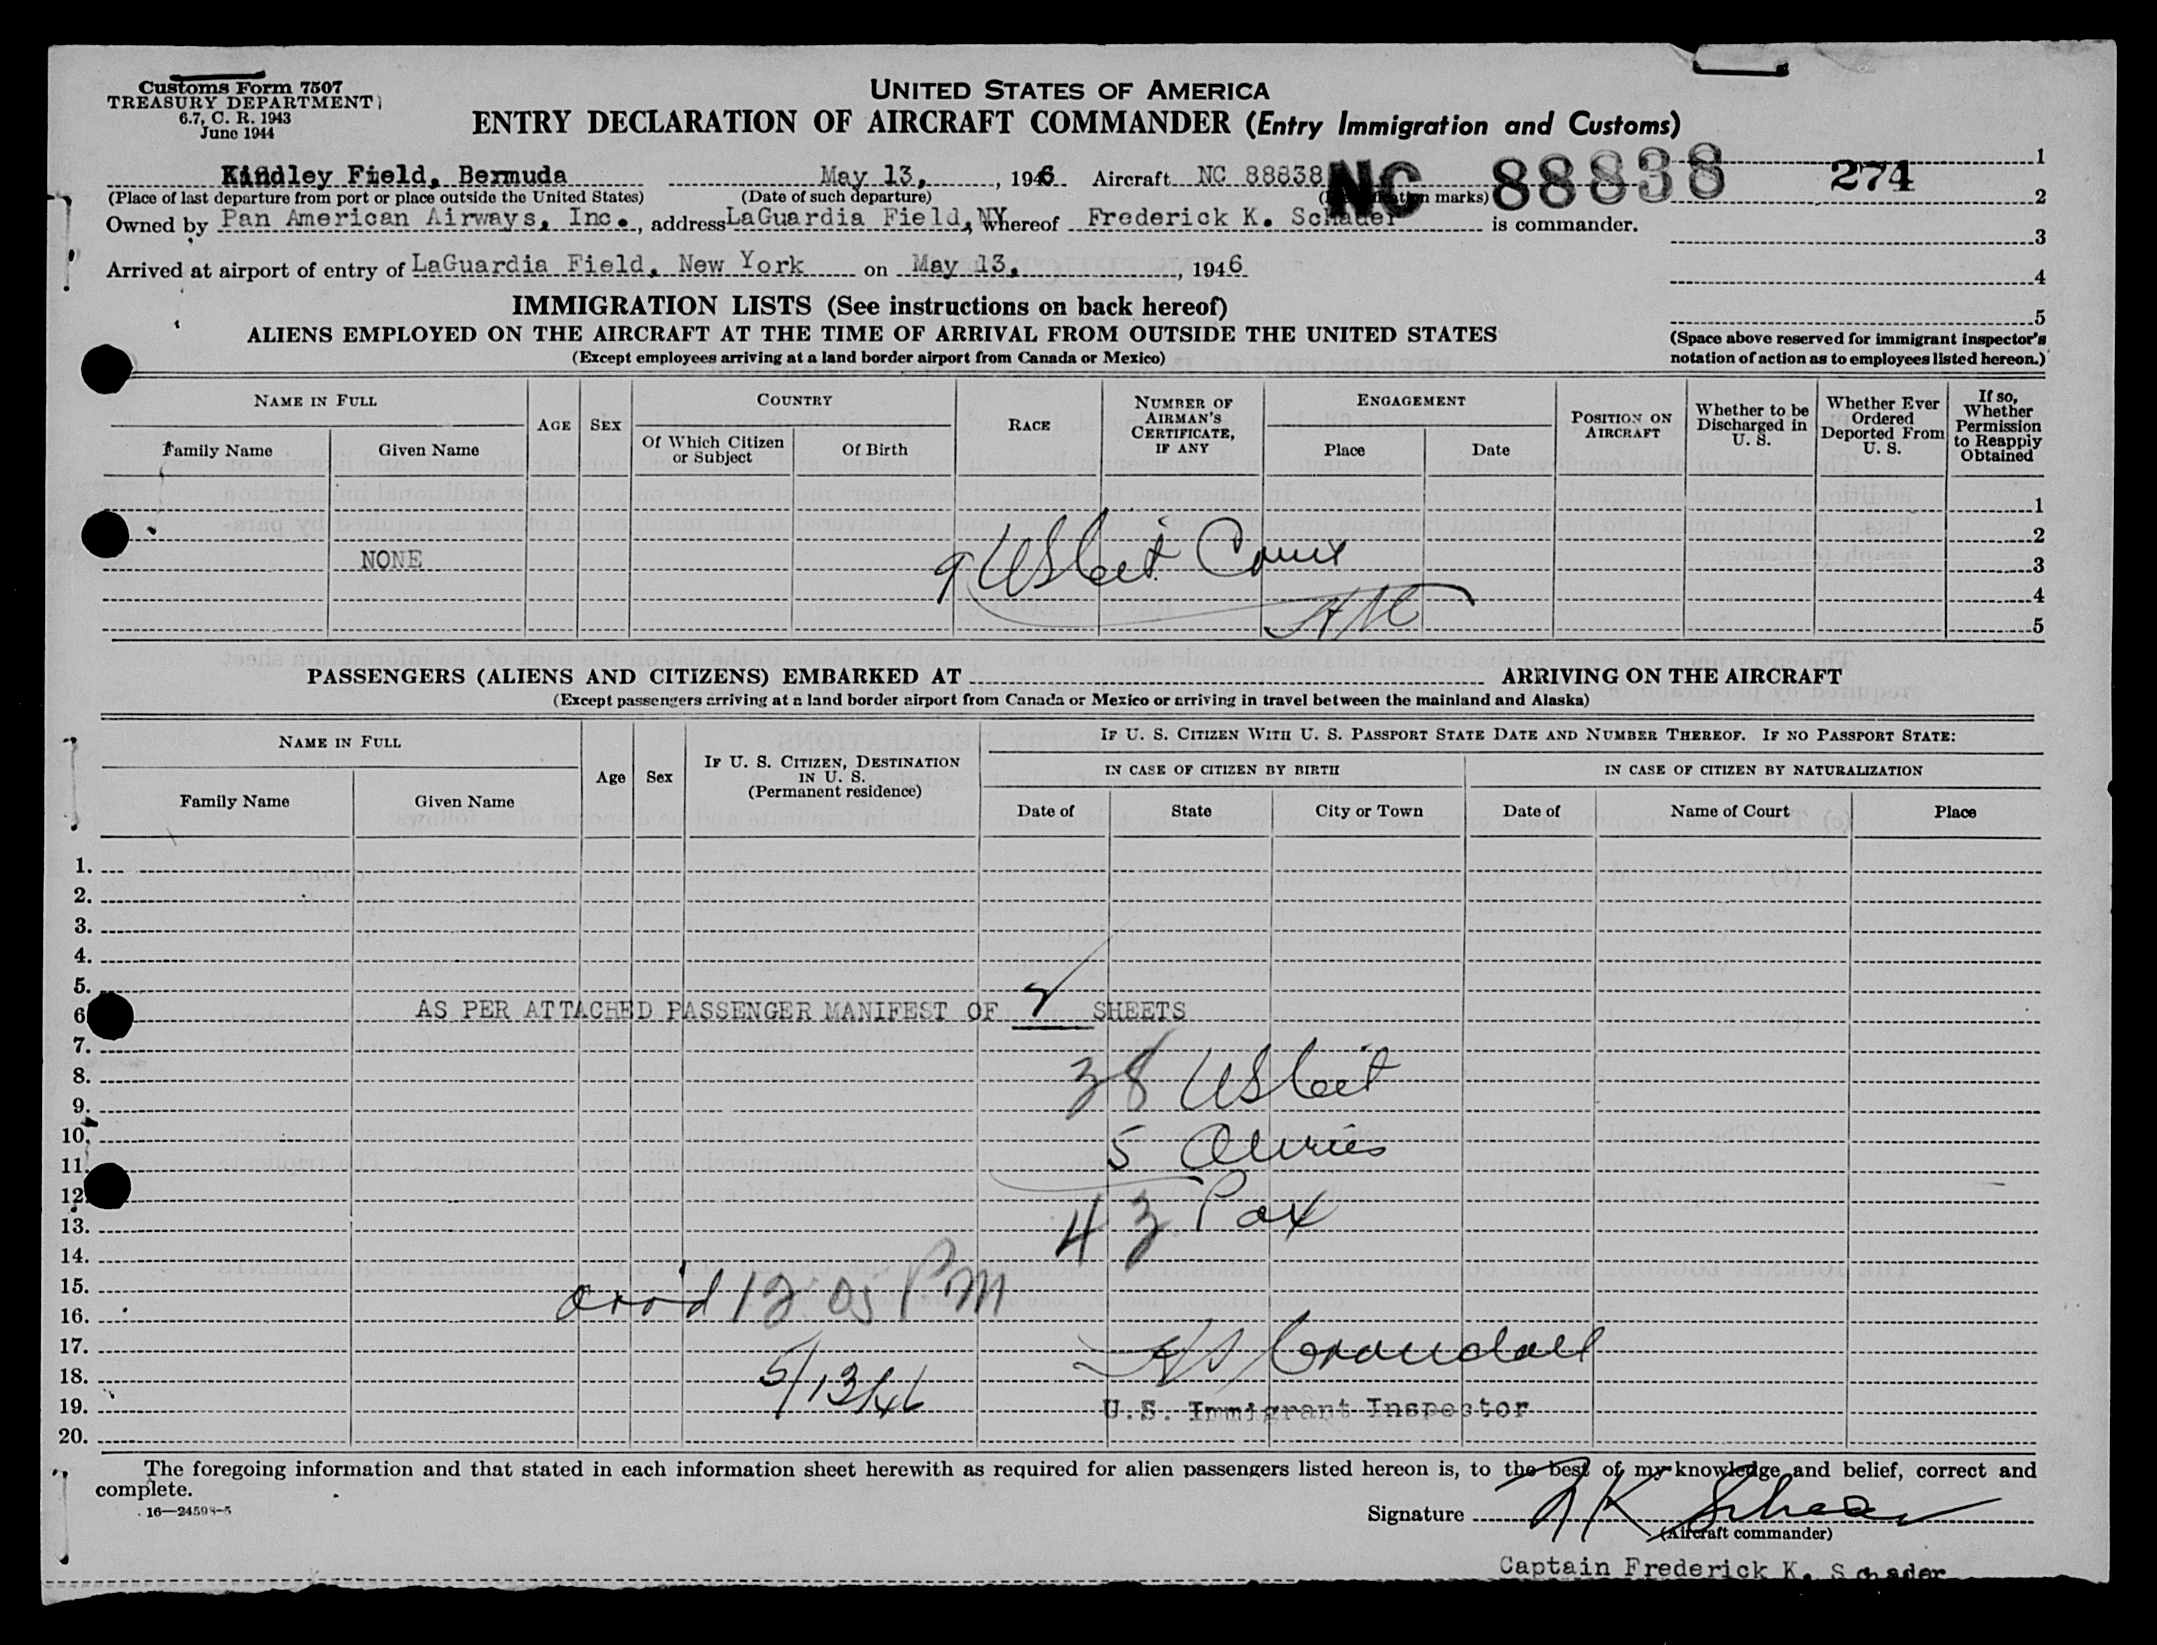 Customs Form 7507
TREASURY DEPARTMENT
6.7, C. R. 1943
June 1944
UNITED STATES OF AMERICA
ENTRY DECLARATION OF AIRCRAFT COMMANDER (Entry Immigration and Customs)
Kindley Field, Bermuda May 13, , 1946 Aircraft NC 88838 NC 88838 274 1
(Place of last departure from port or place outside the United States) (Date of such departure) marks) 2
Owned by Pan American Airways, Inc. , address LaGuardia Field, NY whereof Frederick K. Schader is commander.
3
Arrived at airport of entry of LaGuardia Field, New York on May 13, , 1946
4
IMMIGRATION LISTS (See instructions on back hereof)
5
ALIENS EMPLOYED ON THE AIRCRAFT AT THE TIME OF ARRIVAL FROM OUTSIDE THE UNITED STATES
(Except employees arriving at a land border airport from Canada or Mexico)
(Space above reserved for immigrant inspector's
notation of action as to employees listed hereon.)
NAME IN FULL
Family Name Given Name
AGE
SEX
COUNTRY
Of Which Citizen
or Subject
Of Birth
RACE
NUMBER OF
AIRMAN'S
CERTIFICATE,
IF ANY
ENGAGEMENT
Place Date
POSITION ON
AIRCRAFT
Whether to be
Discharged in
U. S.
Whether Ever
Ordered
Deported From
U. S.
If so,
Whether
Permission
to Reapply
Obtained
1
2
NONE 3
4
5
9 US Cit
PASSENGERS (ALIENS AND CITIZENS) EMBARKED AT ARRIVING ON THE AIRCRAFT
(Except passengers arriving at a land border airport from Canada or Mexico or arriving in travel between the mainland and Alaska)
NAME IN FULL
Family Name Given Name
Age
Sex
IF U. S. CITIZEN, DESTINATION
IN U. S.
(Permanent residence)
IF U. S. CITIZEN WITH U. S. PASSPORT STATE DATE AND NUMBER THEREOF. IF NO PASSPORT STATE:
IN CASE OF CITIZEN BY BIRTH IN CASE OF CITIZEN BY NATURALIZATION
Date of State City or Town Date of Name of Court Place
1.
2.
3.
4.
5.
6 AS PER ATTACHED PASSENGER MANIFEST OF 2 SHEETS
7.
8. 38 US Cit
9.
10.
11. 5 Aliens
12.
13. 43 Pax
14.
15. arr'd 12 05 PM
16.
17. Crandall
18. 5/13/46
19. U.S. Immigrant Inspector
20.
The foregoing information and that stated in each information sheet herewith as required for alien passengers listed hereon is, to the best of my knowledge and belief, correct and
complete.
16—24598-5
Signature F K Schader
(Aircraft commander)
Captain Frederick K. Schader